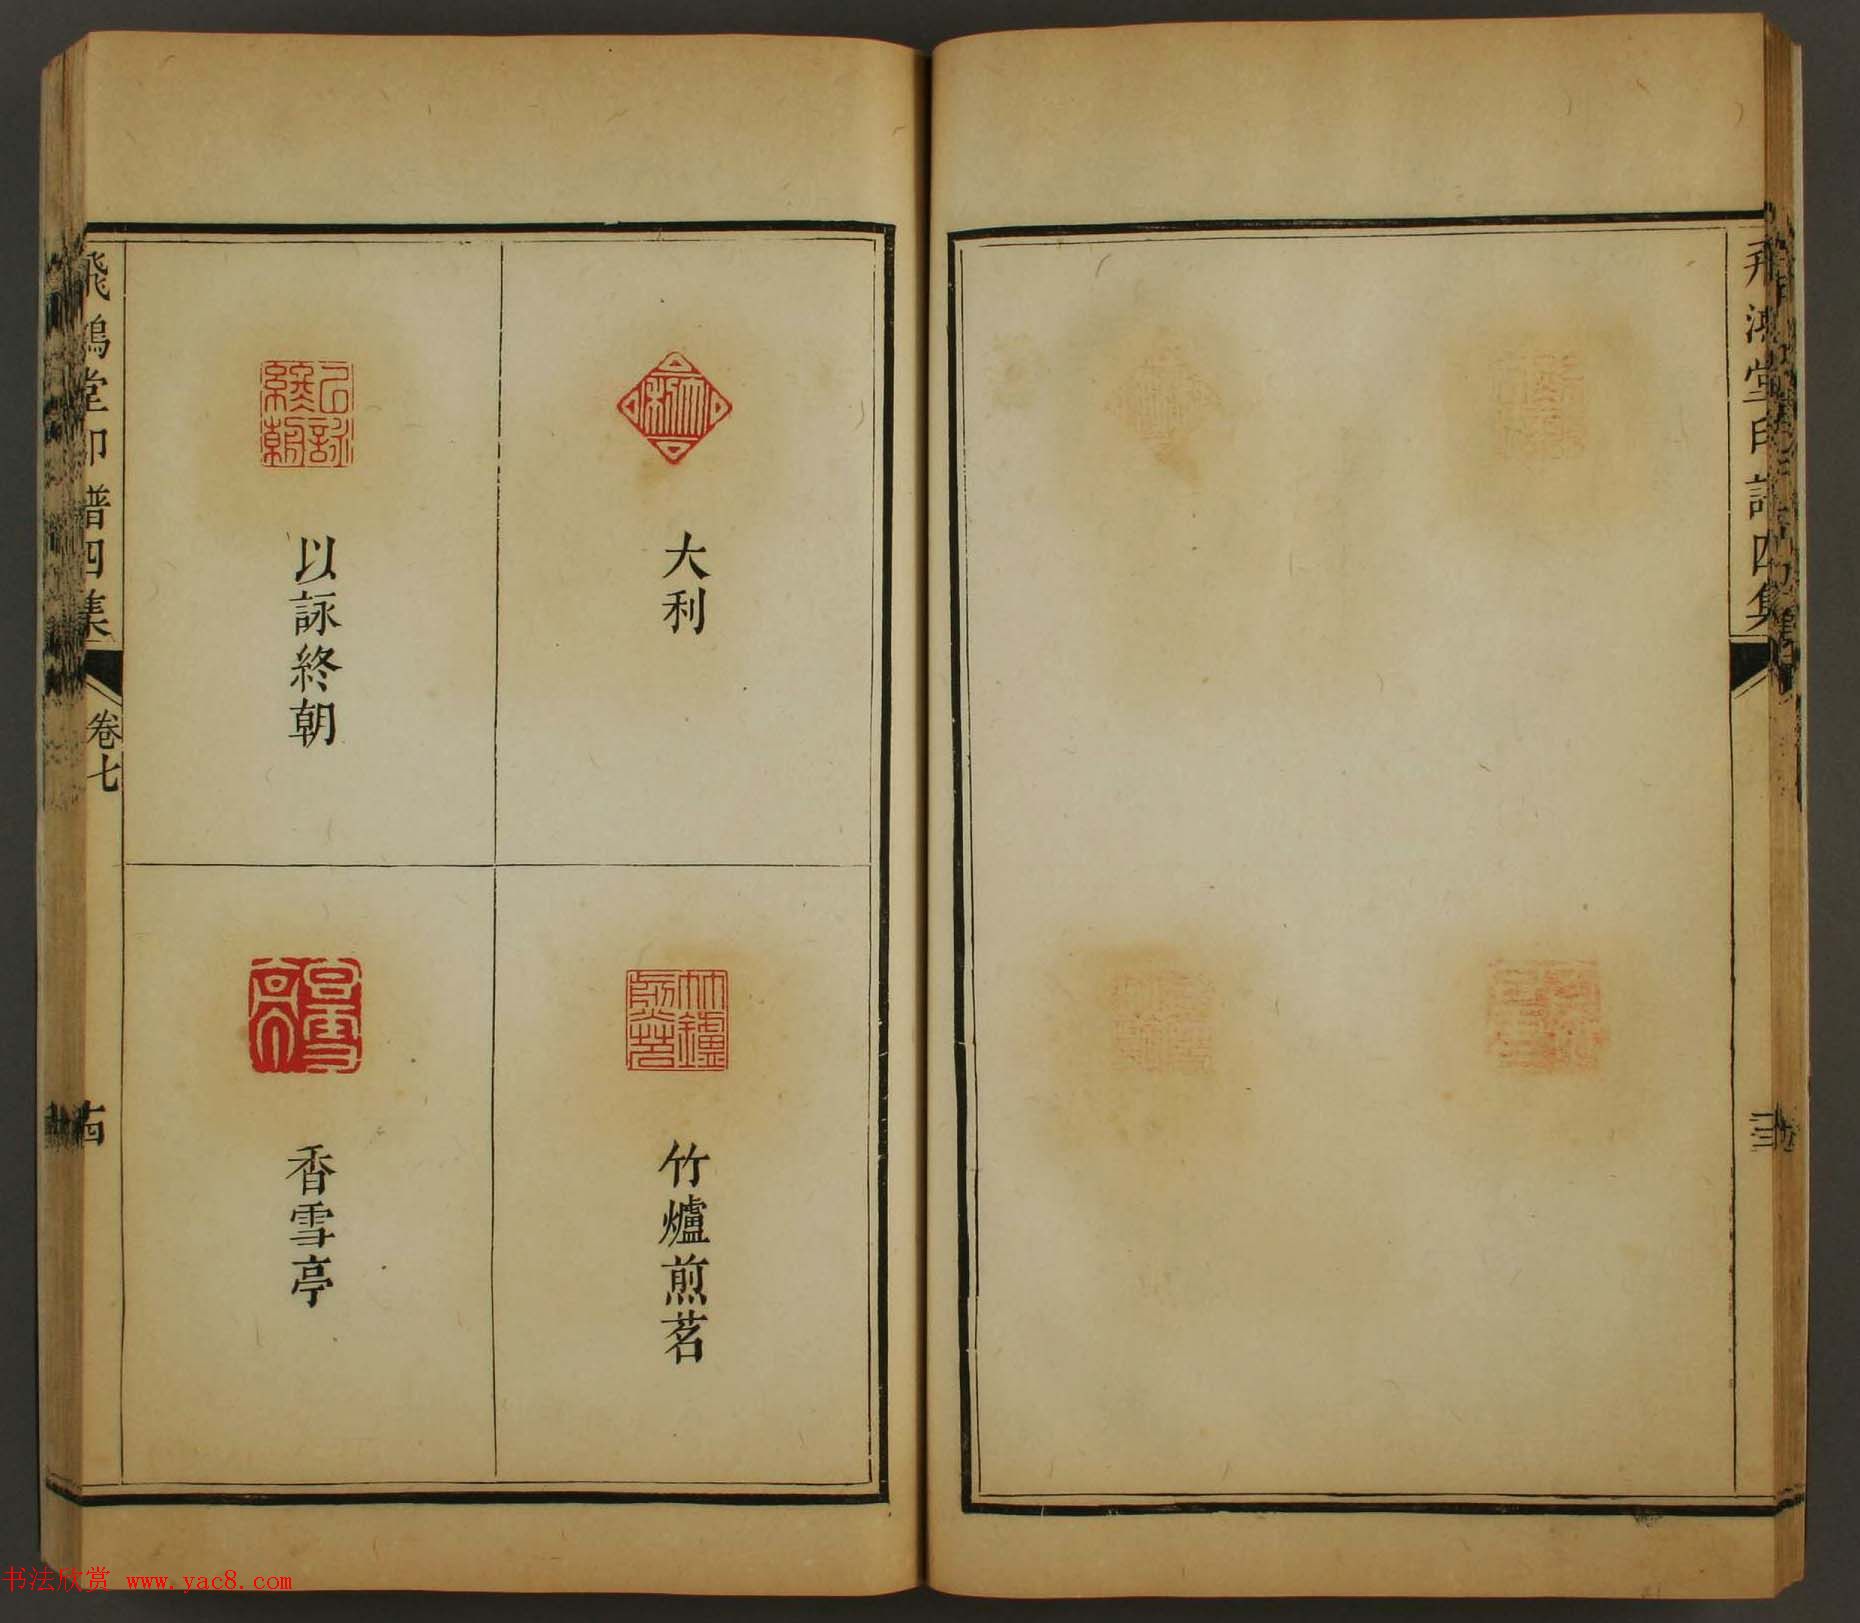 飛鴻堂印譜四集
飛鴻堂印譜四集
卷七
十四
大利
以詠終朝
竹爐煎茗
香雪亭
书法欣赏 www.yac8.com